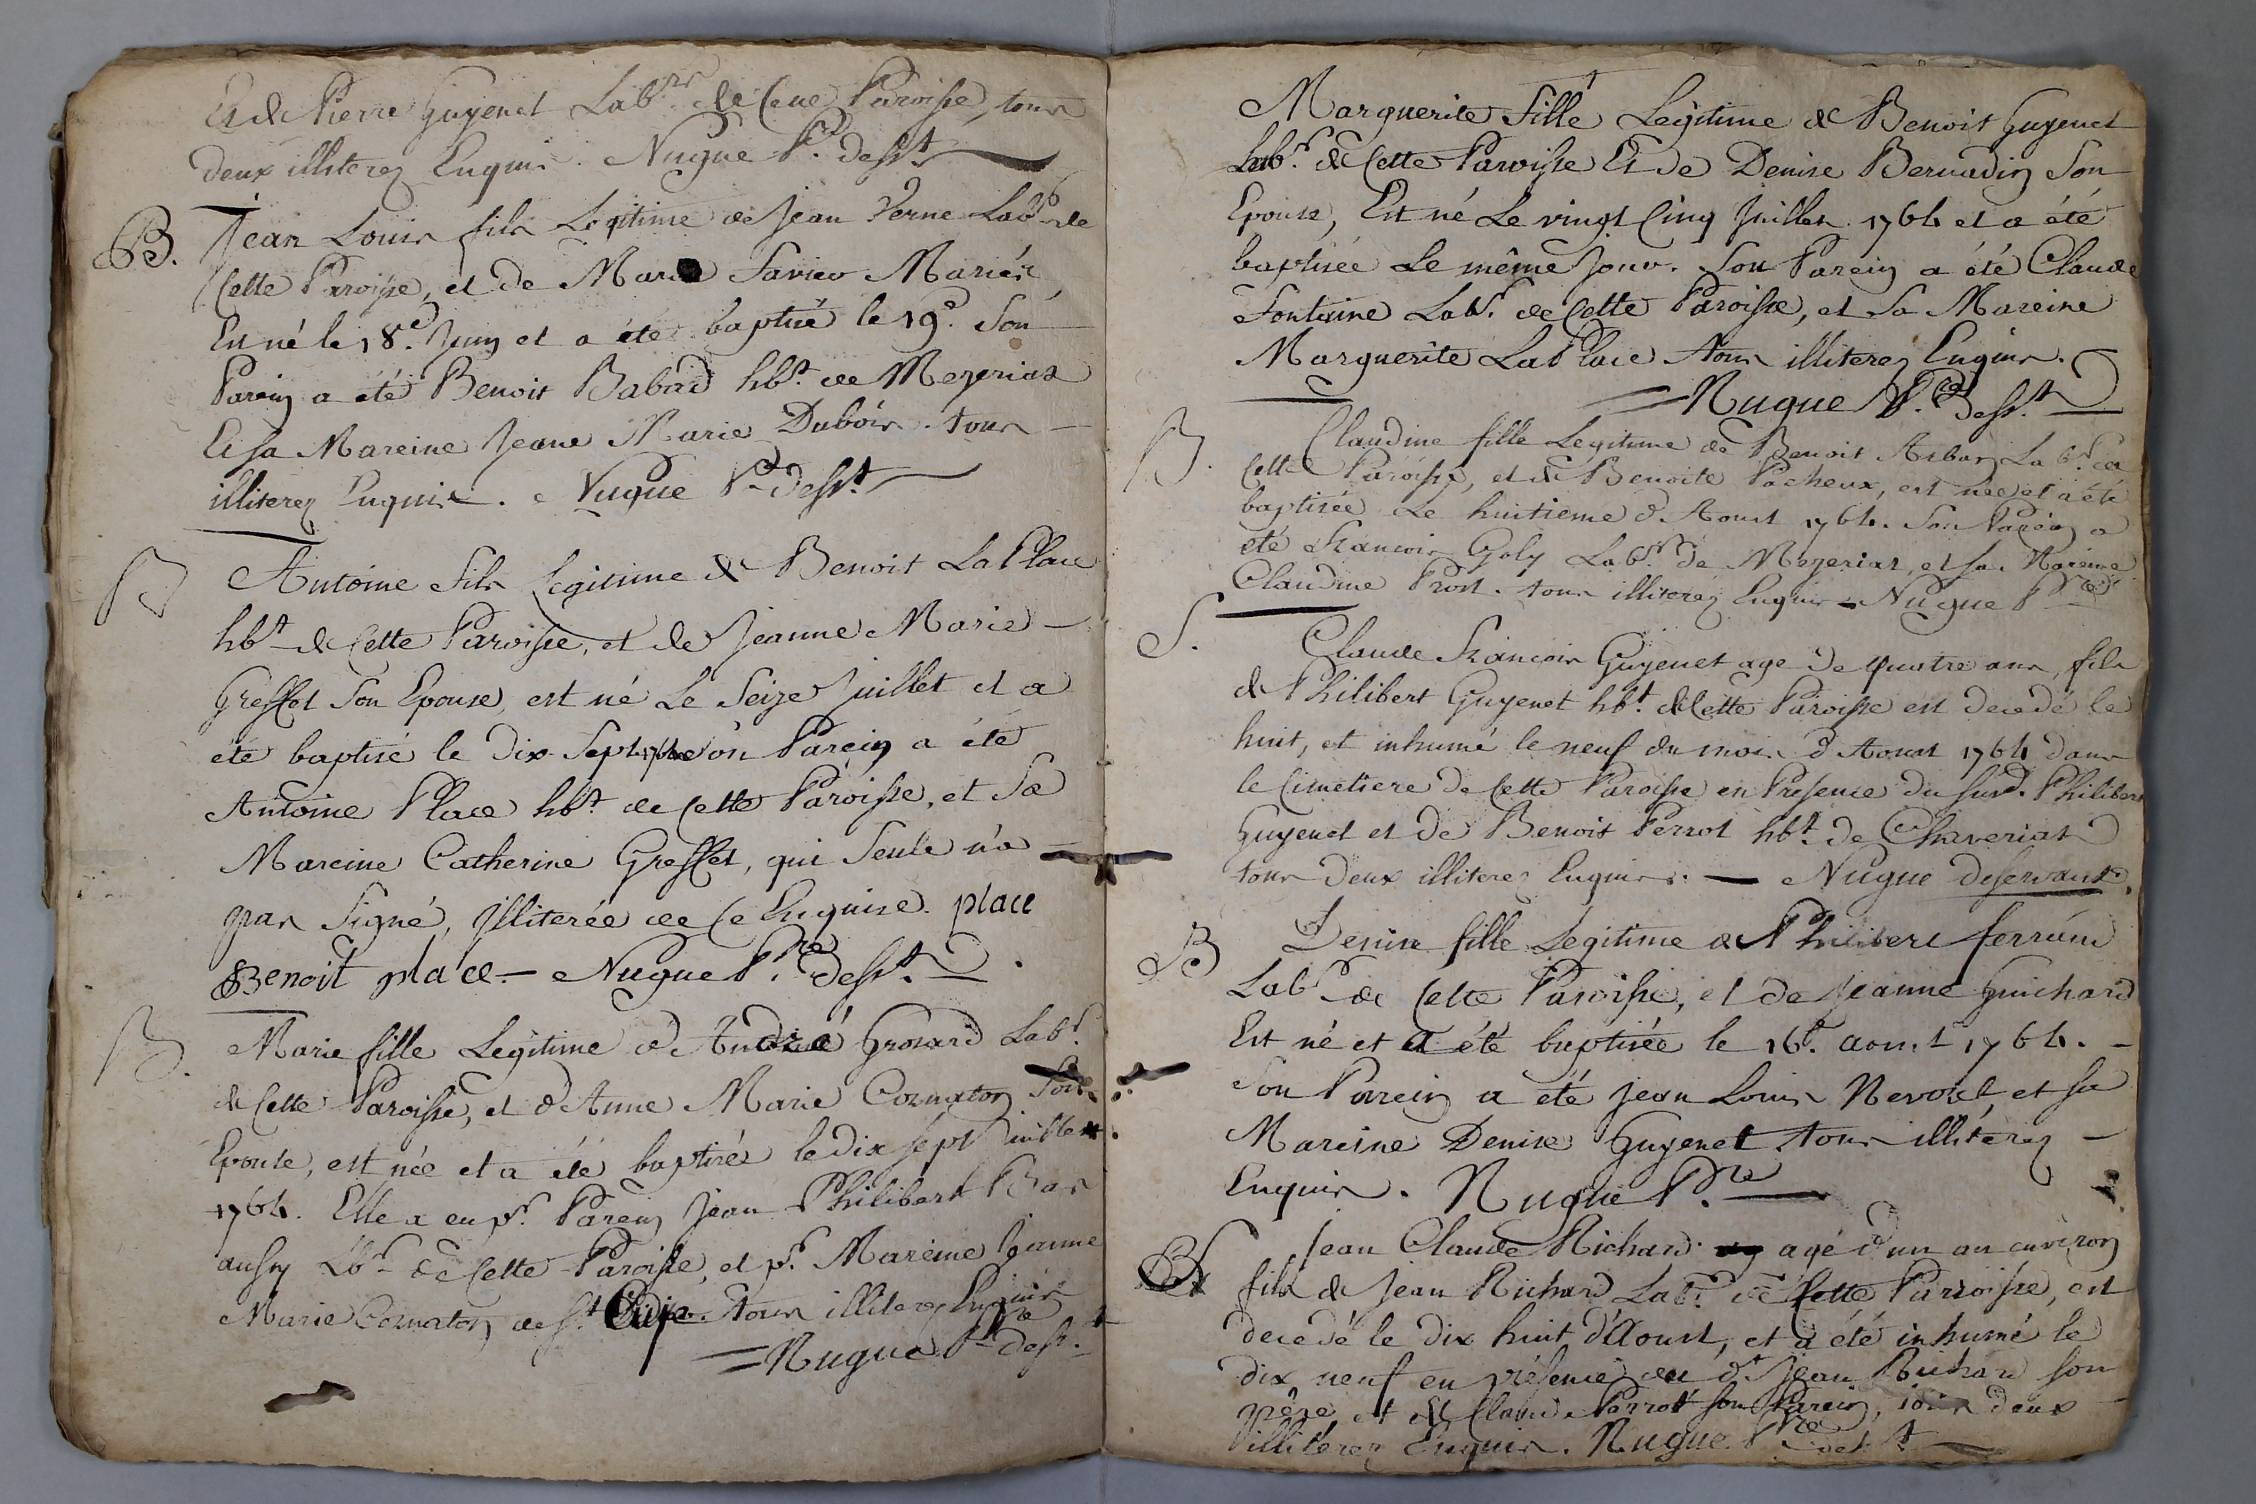 Et de Pierre Guyenet Lab.r de Cette Paroisse, tous
deux illiterez Enquis. Nugue P.re dess.t
B. Jean Louis fils Legitime de Jean Verne Lab.r de
Cette Paroisse, et de Marie Savien Mariés,
Est né le 18.e Juin et a été baptisé le 19.e Son
Parein a été Benoit Babad hb.t de Mezeriat
Et sa Mareine Jeane Marie Dubois. tous
illiterez Enquis. Nugue P.re dess.t
B Antoine fils Legitime de Benoit La Place
hb.t de Cette Paroisse, et de Jeanne Marie
Greffet Son Epouse, est né Le Seize Juillet et a
été baptisé le Dix Sept 1764 Son Parein a été
Antoine Place hb.t de Cette Paroisse, et Sa
Mareine Catherine Greffet, qui Seule n'a
pas Signé, illiterée de ce Enquise. place
Benoit place — Nugue P.re dess.t
B. Marie fille Legitime d'André Grosard Lab.r
de Cette Paroisse, et d'Anne Marie Cornaton Son
Epouse, est née et a été baptisée le dix sept Juillet
1764. Elle a eu p.r Parein Jean Philibert Bas
aussy Lb.r de Cette Paroisse, et p.r Mareine Jeanne
Marie Cornaton de S.t tous illiterez Enquis
= Nugue P.re dess.t
Marguerite Fille Legitime de Benoit Guyenet
Lab.r de Cette Paroisse Et de Denise Bernadin Son
Epouse, Est né Le vingt Cinq Juillet 1764 et a été
baptisée Le même Jour. Son Parein a été Claude
Fontaine Lab.r de Cette Paroisse, et Sa Mareine
Marguerite La Place tous illiterez Enquis.
= Nugue P.re dess.t
B. Claudine fille Legitime de Benoit Arban Lab.r de
Cette Paroisse, et de Benoite Pacheux, est née et a été
baptisée Le huitieme d'Aoust 1764. Son Parein a
été Francois Goly Lab.r de Mezeriat, et sa Mareine
Claudine Prost. tous illiterez Enquis — Nugue P.re
S. Claude Francois Guyenet age de quatre ans, fils
de Philibert Guyenet hb.t de Cette Paroisse est decedé le
huit, et inhumé le neuf du mois d'Aoust 1764 dans
le Cimetiere de Cette Paroisse en Presence du susd. Philibert
Guyenet et de Benoit Perrot hb.t de Chaveriat
tous deux illiterez Enquis. — Nugue desservant.
B Denise fille Legitime de Philibert
Lab.r de Cette Paroisse, et de Jeanne Guichard
Est né et a été baptisée le 16.e aoust 1764. —
Son Parein a été Jean Louis Nevoret, et sa
Mareine Denise Guyenet tous illiterez —
Enquis. Nugue P.re
Jean Claude Richard agé d'un an environ
fils de Jean Richard Lab.r de Cette Paroisse, est
decedé le dix huit d'Aoust, et a été inhumé le
dix neuf en présence du d.t Jean Richard son
père et de Claude Parrot son Parein, tous deux
illiterez Enquis. Nugue P.re dess.t